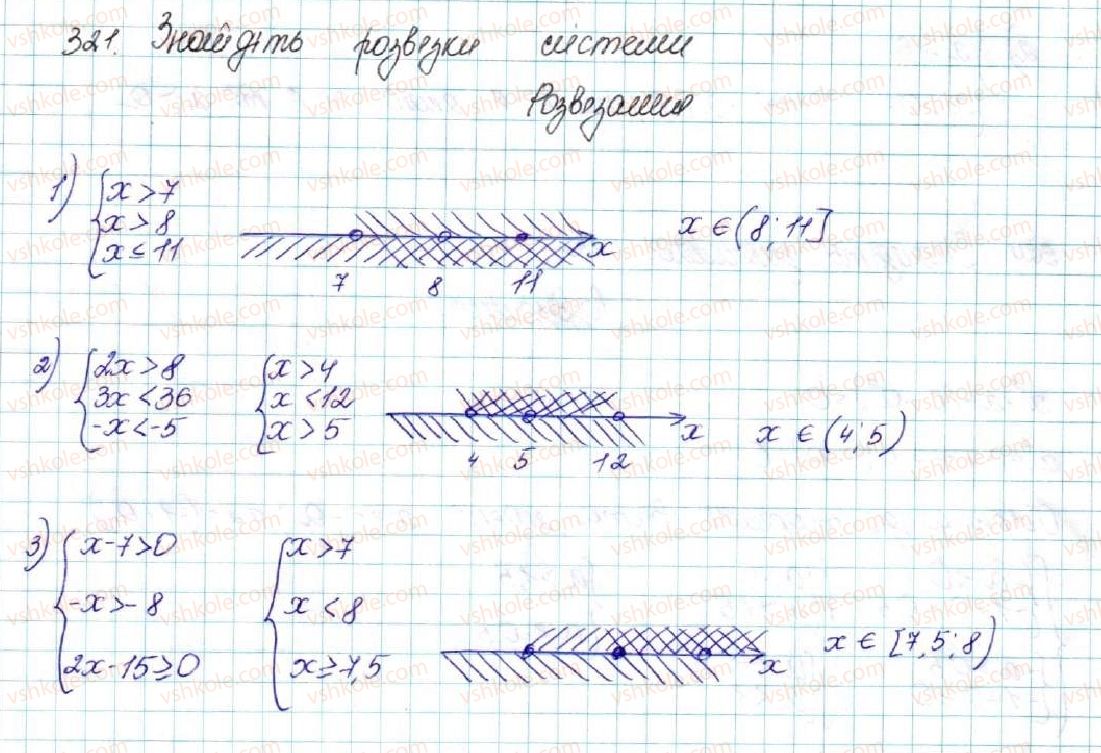 321. Знайдіть розвезки системи
Розвезання
1) { x > 7
x > 8
x ≤ 11
7 8 11 x
x ∈ (8; 11]
2) { 2x > 8 { x > 4
3x < 36 x < 12
-x < -5 x > 5
4 5 12 x
x ∈ (4; 5)
3) { x - 7 > 0 { x > 7
-x > -8 x < 8
2x - 15 ≥ 0 x ≥ 7,5
x
x ∈ [7,5; 8)
vshkole.com